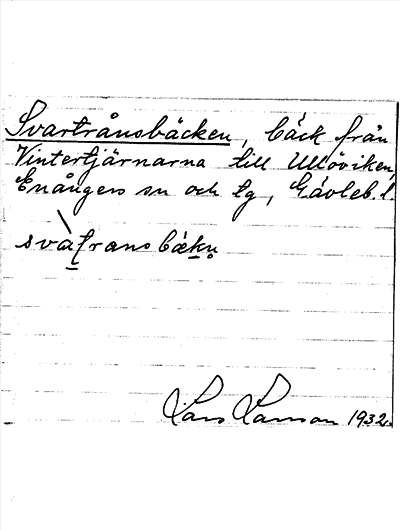 Svartrånsbäcken, bäck från
Vintertjärnarna till Ullöviken,
Enångers sn och tg, Gävleb. l.
svatransbäkn
Lars Larsson 1932.